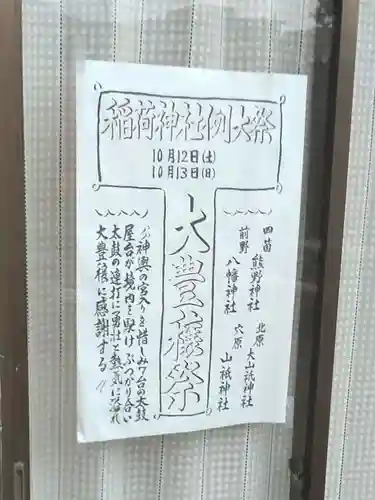 稲荷神社例大祭
10月12日(土)
10月13日(日)
四苗 熊野神社
北原 大山祇神社
前野 八幡神社
穴原 山祇神社
大豊穣祭
神輿の宮入りを惜しみ7台の太鼓
屋台が境内を駆け ぶつかり合い
太鼓の連打に勇壮と熱気に溢れ
大豊穣に感謝する